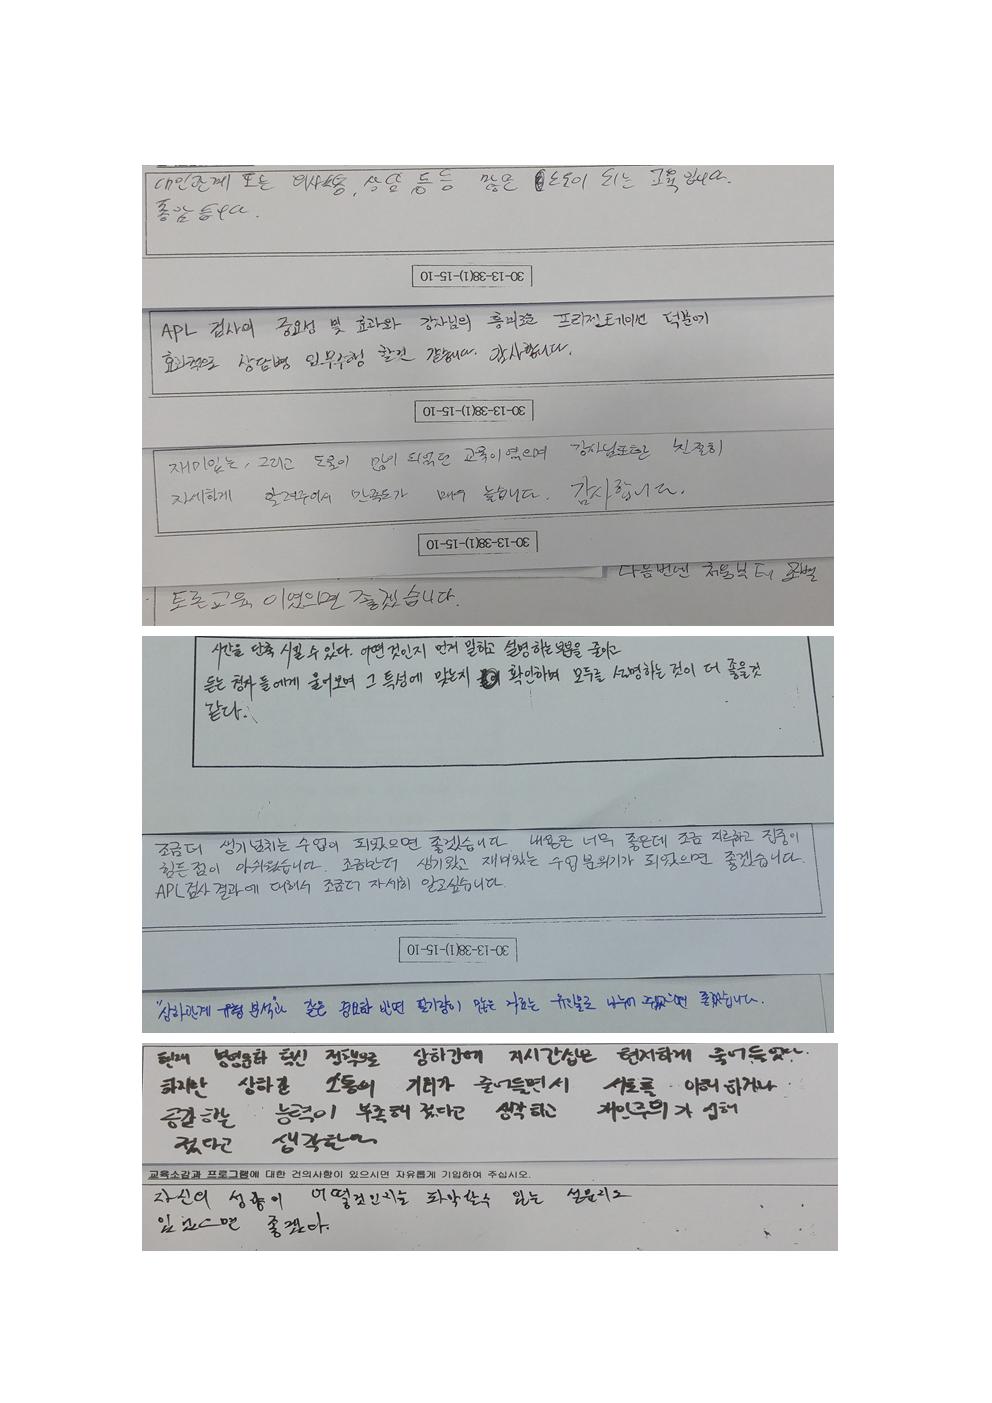 대인관계 또는 의사소통, 상담 등등 많은 도움이 되는 교육입니다.
좋았습니다.
30-13-38(1)-15-10
APL 검사의 중요성 및 효과와 강사님의 흥미로운 프리젠테이션 덕분에
효과적으로 상담병 임무수행 할것 같습니다. 감사합니다.
30-13-38(1)-15-10
재미있는, 그리고 도움이 많이 되었던 교육이였으며 강사님또한 친절히
자세하게 알려주셔서 만족도가 매우 높습니다. 감사합니다.
30-13-38(1)-15-10
다음번엔 처음부터 조별
토론교육 이였으면 좋겠습니다.
시간을 단축 시킬 수 있다. 어떤것인지 먼저 말하고 설명하는 부분을 줄이고
듣는 청자들에게 물어보며 그 특성에 맞는지 확인하며 모두를 설명하는 것이 더 좋을것
같다.
조금더 생기넘치는 수업이 되었으면 좋겠습니다 내용은 너무 좋은데 조금 지루하고 집중이
힘든점이 아쉬웠습니다. 조금만더 생기있고 재미있는 수업분위기가 되었으면 좋겠습니다.
APL검사 결과에 대해서 조금더 자세히 알고싶습니다.
30-13-38(1)-15-10
"상하관계 유형 분석"과 같은 중요한 반면 필기량이 많은 자료는 유인물로 나누어 주었으면 좋겠습니다.
현재 병영문화 혁신 정책으로 상하간에 지시간섭은 현저하게 줄어들었다.
하지만 상하간 소통의 기회가 줄어들면서 서로를 이해하거나
공감하는 능력이 부족해 졌다고 생각하고 개인주의가 심해
졌다고 생각한다
교육소감과 프로그램에 대한 건의사항이 있으시면 자유롭게 기입하여 주십시오.
자신의 성향이 어떨것인지는 파악할수 있는 설문지도
있었으면 좋겠다.